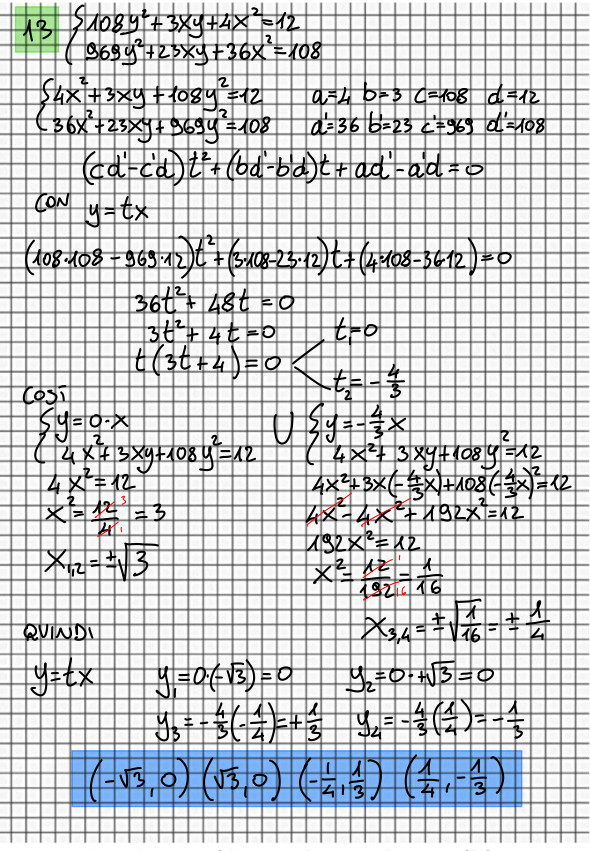 13 { 108y²+3xy+4x²=12
969y²+23xy+36x²=108
{ 4x²+3xy+108y²=12 a=4 b=3 c=108 d=12
36x²+23xy+969y²=108 a'=36 b'=23 c'=969 d'=108
(cd'-c'd)t²+(bd'-b'd)t+ad'-a'd=0
CON y=tx
(108·108-969·12)t²+(3·108-23·12)t+(4·108-36·12)=0
36t²+48t=0
3t²+4t=0 t₁=0
t(3t+4)=0
t₂=-4/3
COSÌ
{ y=0·x ∪ { y=-4/3x
4x²+3xy+108y²=12 4x²+3xy+108y²=12
4x²=12 4x²+3x(-4/3x)+108(-4/3x)²=12
x²=12/4=3 3 1 4x²-4x²+192x²=12
192x²=12
x₁,₂=±√3 x²=12/192=1/16 1 16
x₃,₄=±√1/16=±1/4
QUINDI
y=tx y₁=0·(-√3)=0 y₂=0·+√3=0
y₃=-4/3(-1/4)=+1/3 y₄=-4/3(1/4)=-1/3
(-√3,0) (√3,0) (-1/4,1/3) (1/4,-1/3)